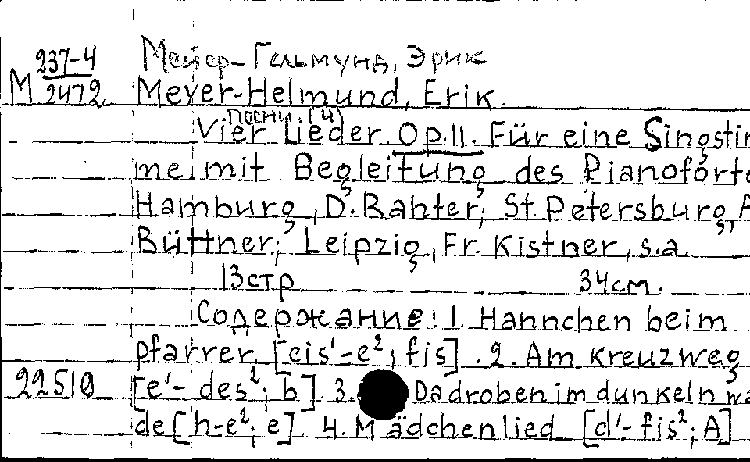 237-4 Мейер-Гельмунд, Эрик
М 2472. Meyer-Helmund, Erik.
Песни (4)
Vier Lieder. Op.11. Für eine Singstim
me mit Begleitung des Pianoforte
Hamburg, D. Rahter; St. Petersburg, A.
Büttner; Leipzig, Fr. Kistner, s.a.
13 стр 34 см.
Содержание: 1. Hannchen beim
pfarrer. [cis'-e²; fis]. 2. Am Kreuzweg
22510 [e'-des²; b] 3. Da droben im dunkeln wa
de [h-e²; e] 4. Mädchenlied [d'-fis²; A]